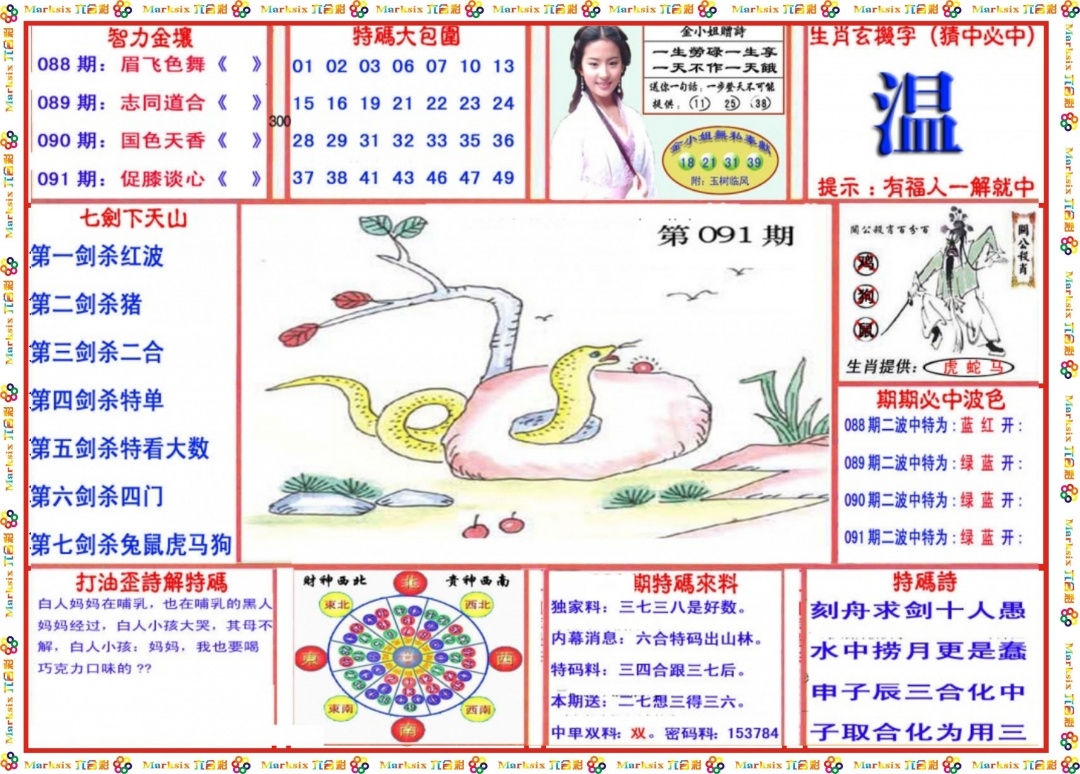 智力金壤
088 期：眉飞色舞《 》
089 期：志同道合《 》
090 期：国色天香《 》
091 期：促膝谈心《 》
300
特碼大包圍
01 02 03 06 07 10 13
15 16 19 21 22 23 24
28 29 31 32 33 35 36
37 38 41 43 46 47 49
金小姐贈詩
一生勞碌一生享
一天不作一天餓
送你一句話：一步登天不可能
提供：11 25 38
金小姐無私奉獻
18 21 31 39
附：玉树临风
生肖玄機字（猜中必中）
温
提示：有福人一解就中
七劍下天山
第一剑杀红波
第二剑杀猪
第三剑杀二合
第四剑杀特单
第五剑杀特看大数
第六剑杀四门
第七剑杀兔鼠虎马狗
第 091 期
關公殺肖百分百
關公殺肖
鸡
狗
鼠
生肖提供：虎 蛇 马
期期必中波色
088 期二波中特为：蓝 红 开：
089 期二波中特为：绿 蓝 开：
090 期二波中特为：绿 蓝 开：
091 期二波中特为：绿 蓝 开：
打油歪詩解特碼
白人妈妈在哺乳，也在哺乳的黑人
妈妈经过，白人小孩大哭，其母不
解，白人小孩：妈妈，我也要喝
巧克力口味的 ??
财神西北 北 贵神西南
東北 西北
東 西
東南 西南
南
期特碼來料
独家料：三七三八是好数。
内幕消息：六合特码出山林。
特码料：三四合跟三七后。
本期送：二七想三得三六。
中单双料：双。密码料：153784
特碼詩
刻舟求剑十人愚
水中捞月更是蠢
申子辰三合化中
子取合化为用三